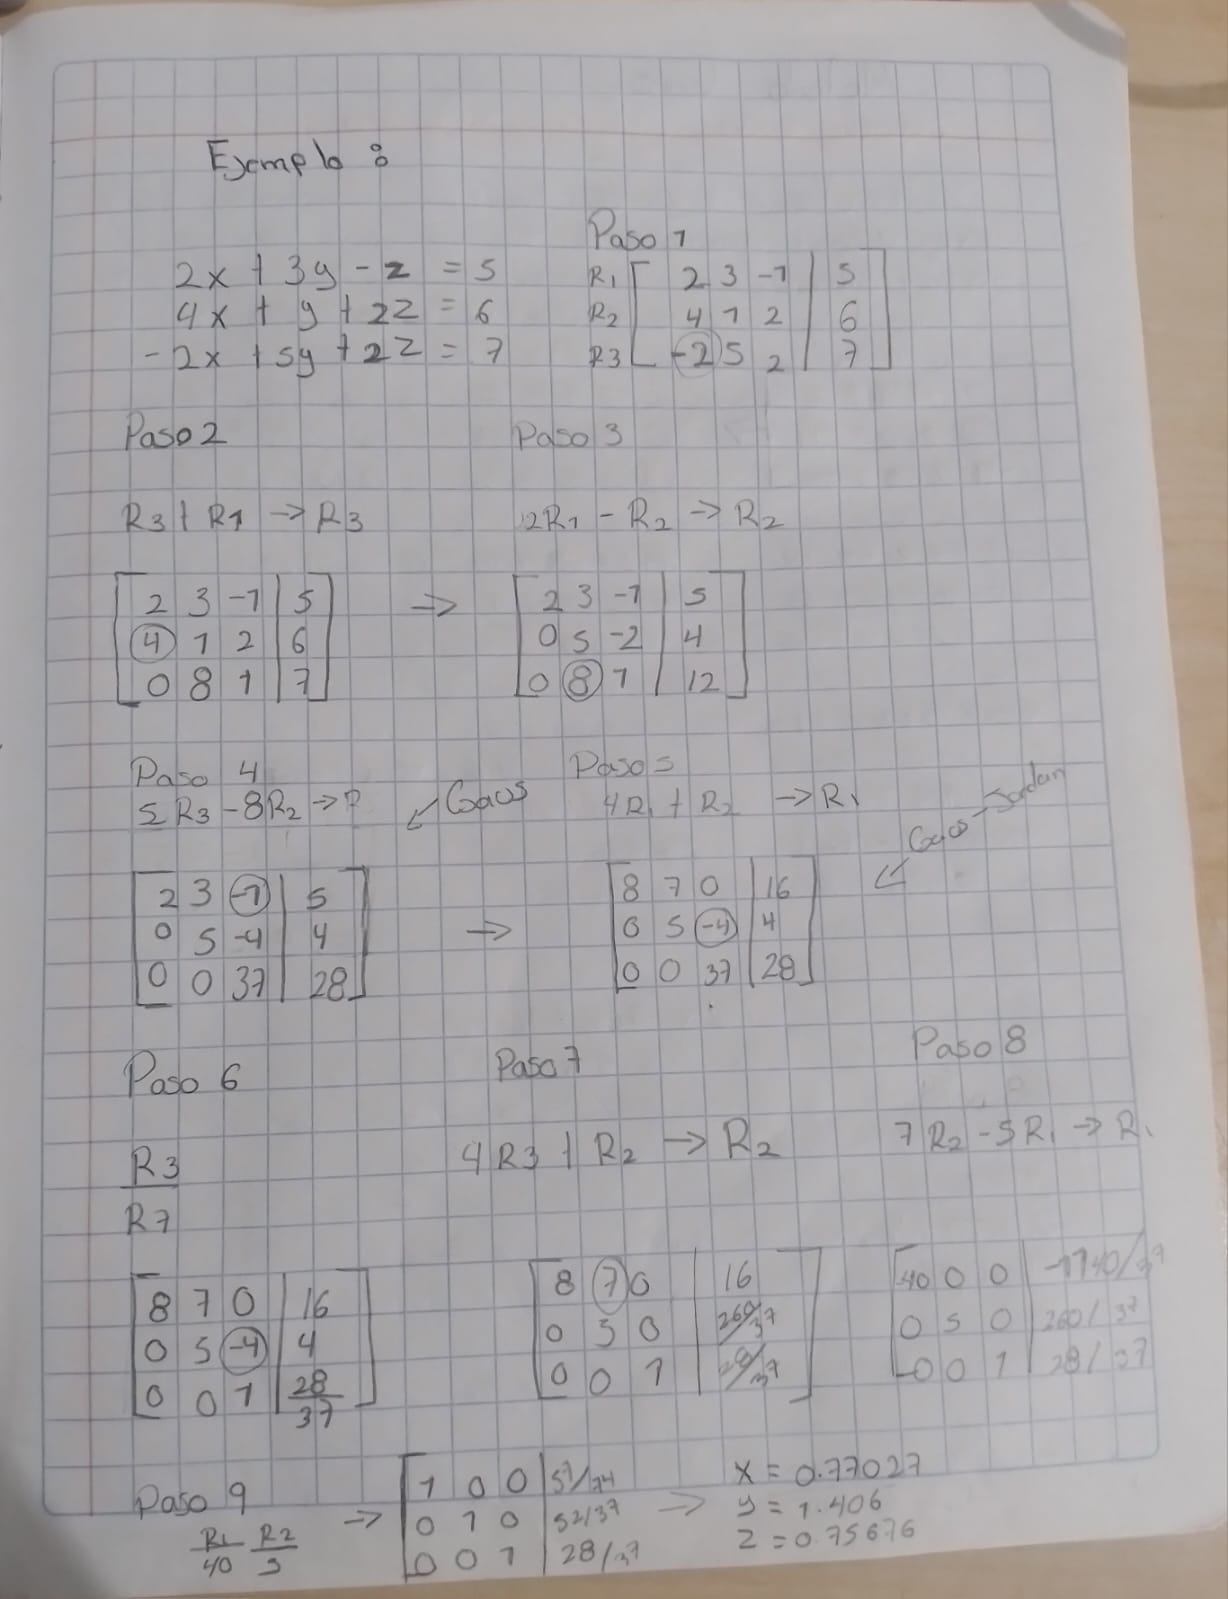 Ejemplo :
2x + 3y - z = 5
4x + y + 2z = 6
-2x + 5y + 2z = 7
Paso 1
R1 [ 2 3 -1 | 5 ]
R2 [ 4 1 2 | 6 ]
R3 [ -2 5 2 | 7 ]
Paso 2
R3 + R1 → R3
[ 2 3 -1 | 5 ]
[ 4 1 2 | 6 ]
[ 0 8 1 | 7 ]
→
Paso 3
2R1 - R2 → R2
[ 2 3 -1 | 5 ]
[ 0 5 -2 | 4 ]
[ 0 8 1 | 12 ]
Paso 4
5 R3 - 8R2 → R
↙ Gaus
[ 2 3 -1 | 5 ]
[ 0 5 -4 | 4 ]
[ 0 0 37 | 28 ]
→
Paso 5
4R1 + R2 → R1
↙ Gaus - Jordan
[ 8 7 0 | 16 ]
[ 0 5 -4 | 4 ]
[ 0 0 37 | 28 ]
Paso 6
R3
R7
[ 8 7 0 | 16 ]
[ 0 5 -4 | 4 ]
[ 0 0 1 | 28/37 ]
Paso 7
4R3 + R2 → R2
[ 8 7 0 | 16 ]
[ 0 5 0 | 260/37 ]
[ 0 0 1 | 28/37 ]
Paso 8
7 R2 - 5R1 → R1
[ 40 0 0 | -1140/37 ]
[ 0 5 0 | 260/37 ]
[ 0 0 1 | 28/37 ]
Paso 9
R1/40 R2/5
→
[ 1 0 0 | 57/74 ]
[ 0 1 0 | 52/37 ]
[ 0 0 1 | 28/37 ]
→
x = 0.77027
y = 1.406
z = 0.75676